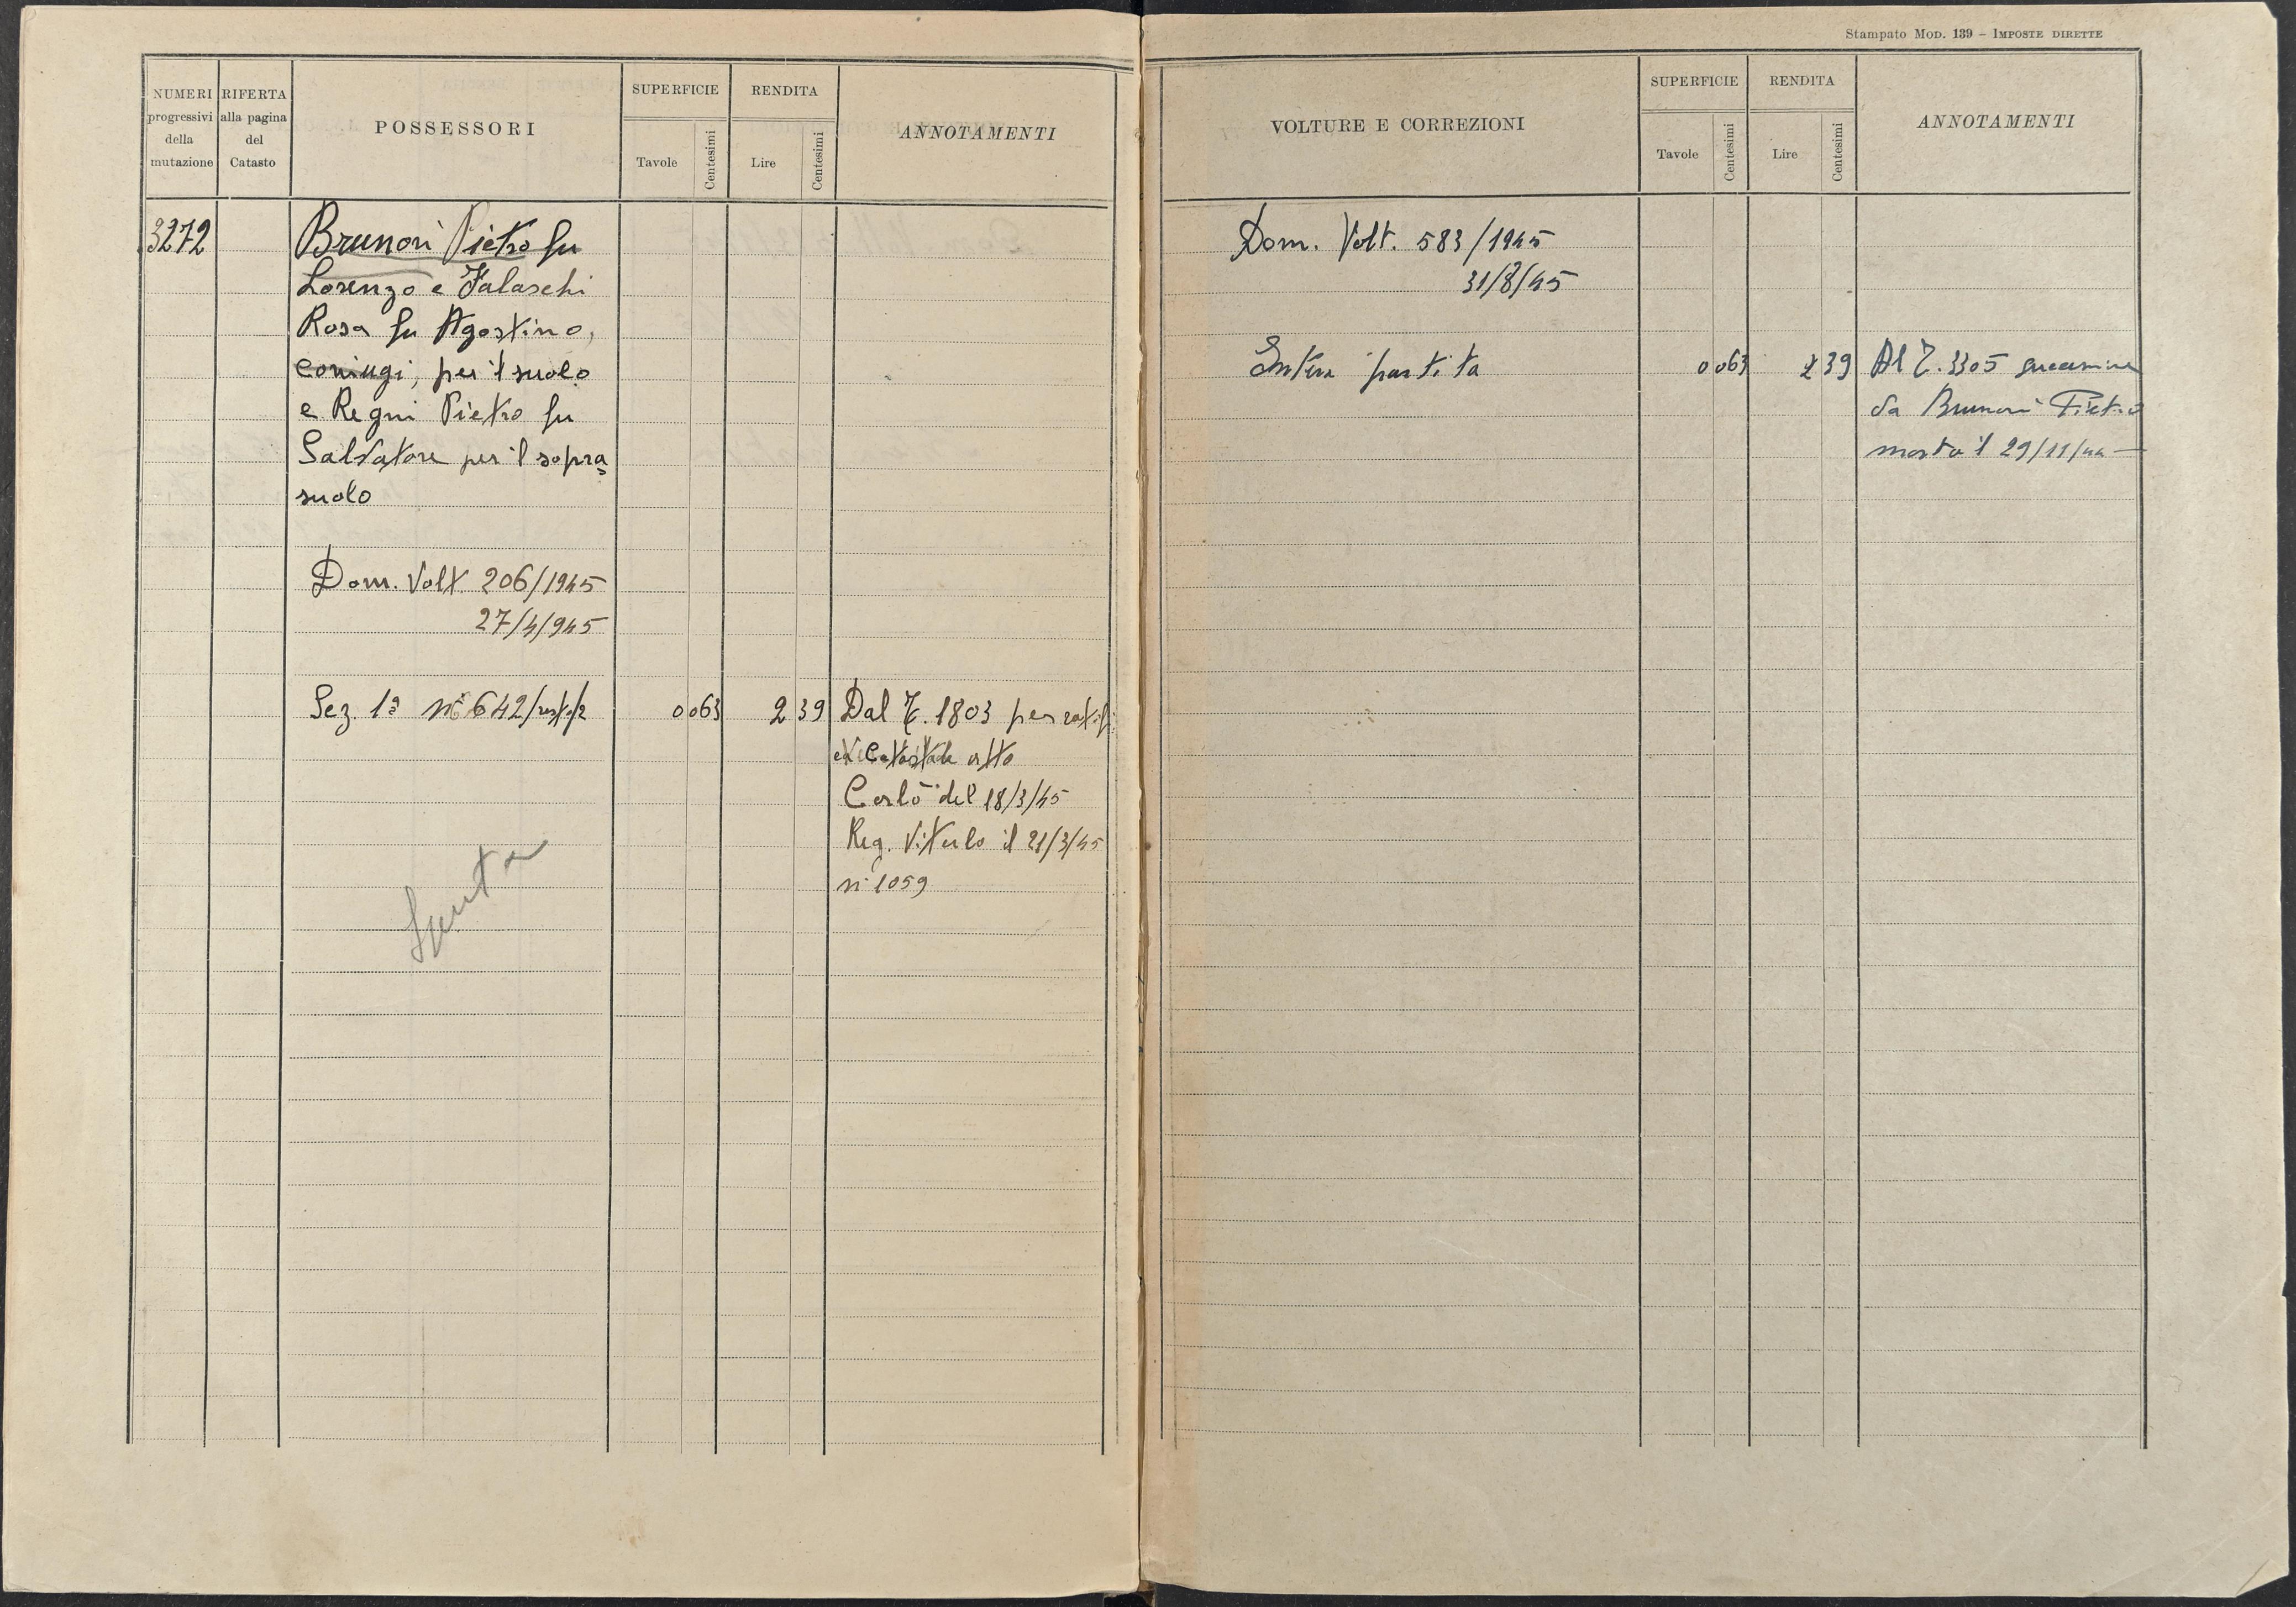 Stampato Mod. 139 – Imposte dirette
NUMERI progressivi della mutazione
RIFERTA alla pagina del Catasto
POSSESSORI
SUPERFICIE
Tavole
Centesimi
RENDITA
Lire
Centesimi
ANNOTAMENTI
3272
Brunori Pietro fu
Lorenzo e Falaschi
Rosa fu Agostino,
coniugi, per il suolo
e Regni Pietro fu
Salvatore per il sopra
suolo
Dom. Volt. 206/1945
27/4/945
Sez. 1ª n° 642/resto/2 0 063 2 39 Dal T. 1803 per
Catastale atto
del 18/3/45
Reg. Viterbo il 21/3/45
n° 1059
Spunta
VOLTURE E CORREZIONI
SUPERFICIE
Tavole
Centesimi
RENDITA
Lire
Centesimi
ANNOTAMENTI
Dom. Volt. 583/1945
31/8/45
Intera partita 0 063 2 39 Al T. 3305 successione
da Brunori Pietro
morto il 29/11/44